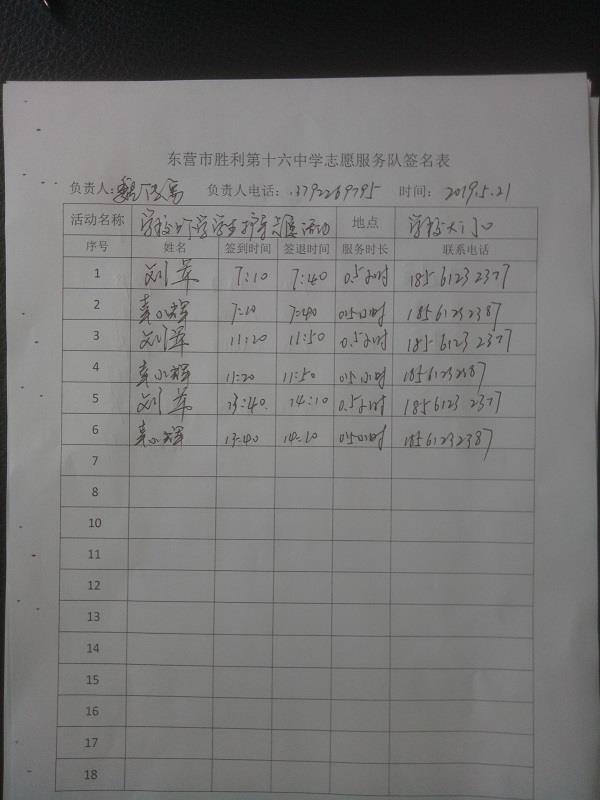 东营市胜利第十六中学志愿服务队签名表
负责人: 负责人电话: 13792269795 时间: 2019.5.21
活动名称 学校门学学生护导志愿活动 地点 学校大门口
序号 姓名 签到时间 签退时间 服务时长 联系电话
1 刘 7:10 7:40 0.5小时 185 6123 2377
2 袁小辉 7:10 7:40 0.5小时 18561232387
3 刘 11:20 11:50 0.5小时 185 6123 2377
4 袁小辉 11:20 11:50 0.5小时 18561232387
5 刘 13:40. 14:10 0.5小时 185 6123 2377
6 袁小辉 13:40 14:10 0.5小时 18561232387
7
8
10
11
12
13
14
15
16
17
18